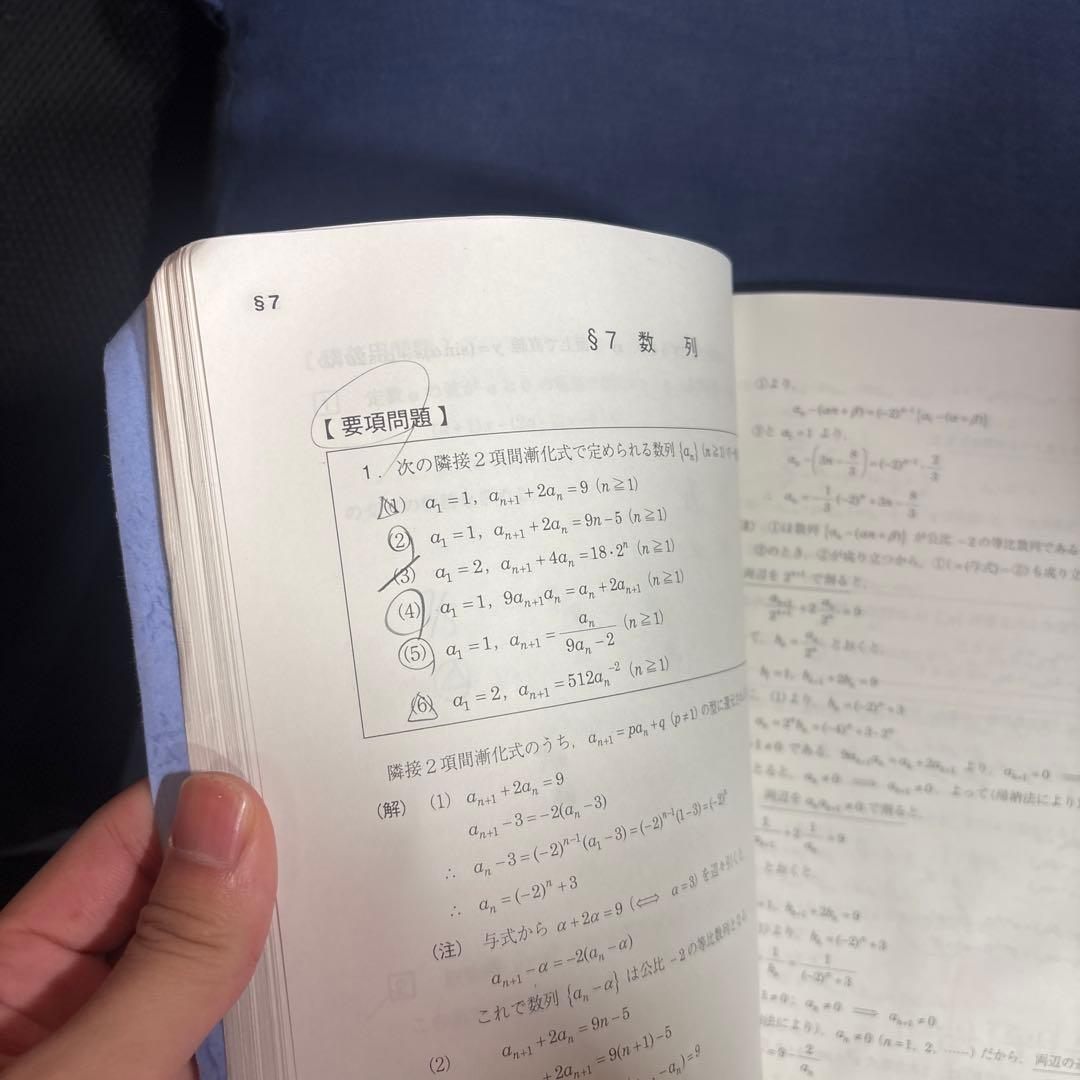 §7
§7 数 列
【要項問題】
1. 次の隣接2項間漸化式で定められる数列 {aₙ} (n≧1)
(1) a₁=1, aₙ₊₁+2aₙ=9 (n≧1)
(2) a₁=1, aₙ₊₁+2aₙ=9n-5 (n≧1)
(3) a₁=2, aₙ₊₁+4aₙ=18·2ⁿ (n≧1)
(4) a₁=1, 9aₙ₊₁aₙ=aₙ+2aₙ₊₁ (n≧1)
(5) a₁=1, aₙ₊₁=aₙ/(9aₙ-2) (n≧1)
(6) a₁=2, aₙ₊₁=512aₙ⁻² (n≧1)
隣接2項間漸化式のうち, aₙ₊₁=paₙ+q (p≠1) の型に還元
(解) (1) aₙ₊₁+2aₙ=9
aₙ₊₁-3=-2(aₙ-3)
∴ aₙ-3=(-2)ⁿ⁻¹(a₁-3)=(-2)ⁿ⁻¹(1-3)=(-2)ⁿ
∴ aₙ=(-2)ⁿ+3
(注) 与式から α+2α=9 (⟺ α=3) を辺々引くと,
aₙ₊₁-α=-2(aₙ-α)
これで数列 {aₙ-α} は公比 -2 の等比数列となる
(2) aₙ₊₁+2aₙ=9n-5
+2aₙ₊₁=9(n+1)-5
-aₙ)=9
①より,
aₙ-(αn+β)=(-2)ⁿ⁻¹{a₁-(α+β)}
③と a₁=1 より,
aₙ-(3n-8/3)=(-2)ⁿ⁻¹·2/3
∴ aₙ=-1/3(-2)ⁿ+3n-8/3
①は数列 {aₙ-(αn+β)} が公比 -2 の等比数列である
③のとき, ②が成り立つから, ①(=(与式)-②)も成り立
両辺を 2ⁿ⁺¹ で割ると,
aₙ₊₁/2ⁿ⁺¹+2·aₙ/2ⁿ=9
で, bₙ=aₙ/2ⁿ とおくと,
b₁=1, bₙ₊₁+2bₙ=9
(1)より, bₙ=(-2)ⁿ+3
aₙ=2ⁿbₙ=(-4)ⁿ+3·2ⁿ
≠0 である. 9aₙ₊₁aₙ=aₙ+2aₙ₊₁ より, aₙ₊₁=0 ⟹
とると, aₙ≠0 ⟹ aₙ₊₁≠0. よって(帰納法により)
両辺を aₙaₙ₊₁≠0 で割ると,
1/aₙ₊₁+2·1/aₙ=9
とおくと,
=1, bₙ₊₁+2bₙ=9
より, bₙ=(-2)ⁿ+3
1/bₙ=1/((-2)ⁿ+3)
≠0; aₙ≠0 ⟹ aₙ₊₁≠0
法により), aₙ≠0 (n=1, 2, ……) だから, 両辺の
=9-2/aₙ